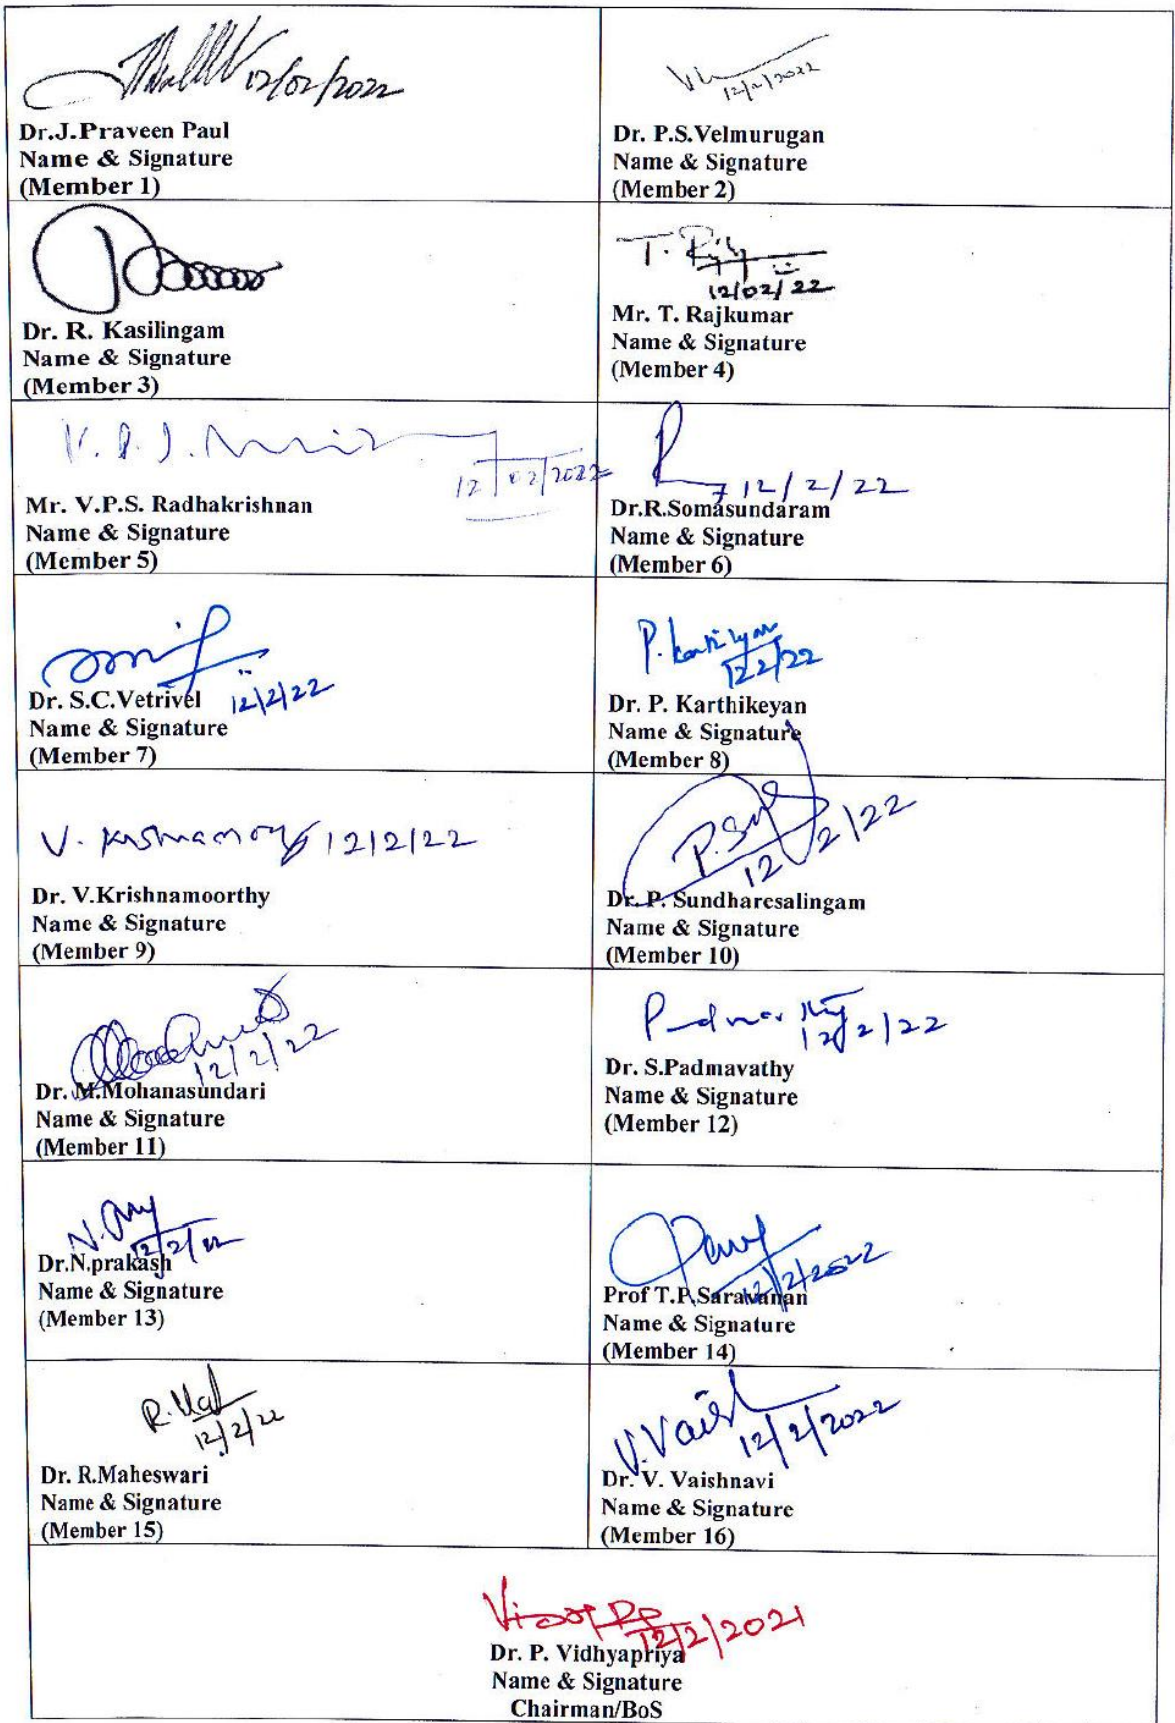 12/02/2022
Dr.J.Praveen Paul
Name & Signature
(Member 1)
12/2/2022
Dr. P.S.Velmurugan
Name & Signature
(Member 2)
Dr. R. Kasilingam
Name & Signature
(Member 3)
T.
12/02/22
Mr. T. Rajkumar
Name & Signature
(Member 4)
12/02/2022
Mr. V.P.S. Radhakrishnan
Name & Signature
(Member 5)
12/2/22
Dr.R.Somasundaram
Name & Signature
(Member 6)
12/2/22
Dr. S.C.Vetrivel
Name & Signature
(Member 7)
12/2/22
Dr. P. Karthikeyan
Name & Signature
(Member 8)
V. 12/2/22
Dr. V.Krishnamoorthy
Name & Signature
(Member 9)
12/2/22
Dr. P. Sundharesalingam
Name & Signature
(Member 10)
12/2/22
Dr. M.Mohanasundari
Name & Signature
(Member 11)
12/2/22
Dr. S.Padmavathy
Name & Signature
(Member 12)
12/2/22
Dr.N.prakash
Name & Signature
(Member 13)
12/2/2022
Prof T.P.Saravanan
Name & Signature
(Member 14)
12/2/22
Dr. R.Maheswari
Name & Signature
(Member 15)
12/2/2022
Dr. V. Vaishnavi
Name & Signature
(Member 16)
12/2/2021
Dr. P. Vidhyapriya
Name & Signature
Chairman/BoS